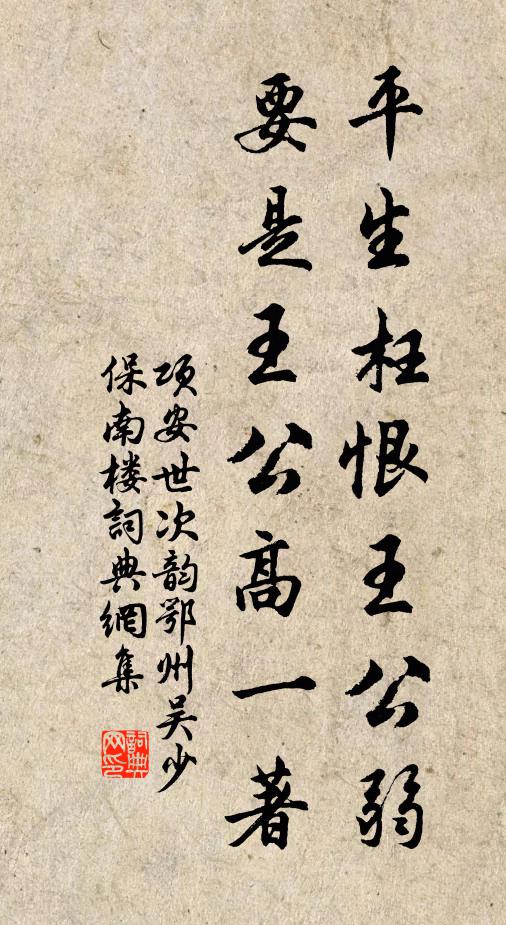 平生枉恨王公弱
要是王公高一著
项安世次韵鄂州吴少
保南楼詞典網集
詞典網印